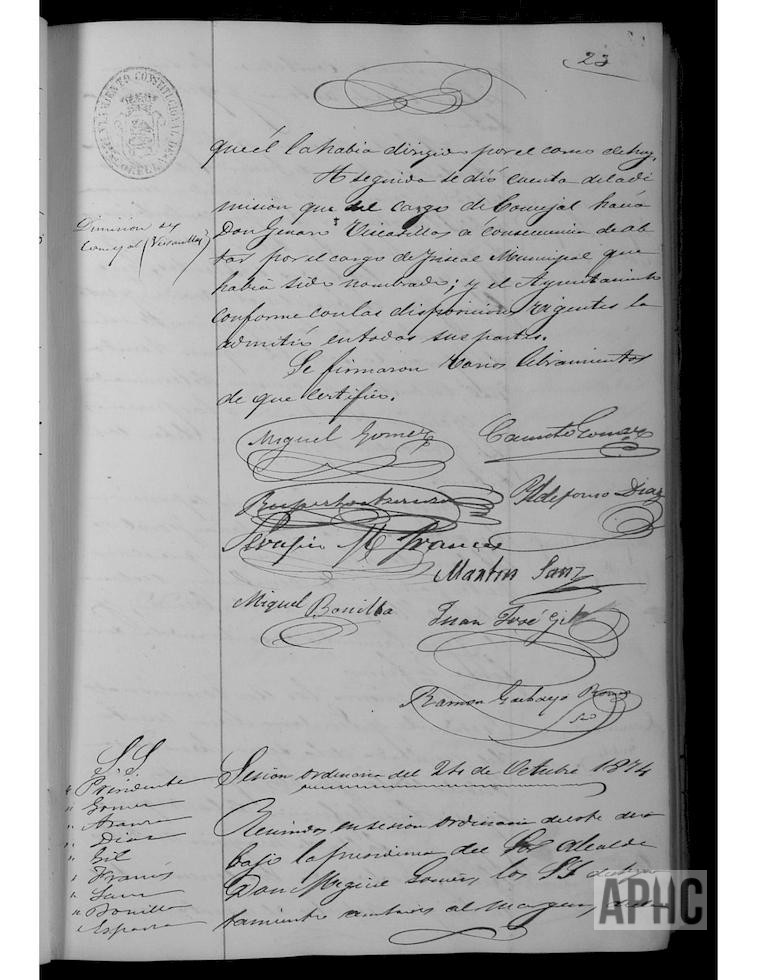 23
AYUNTAMIENTO CONSTITUCIONAL DE
que él la había dirigido por el correo de hoy.
A seguida se dió cuenta de la di
mision que del cargo de Concejal hacía
Don Genaro Viscasillas a consecuencia de ob
tar por el cargo de Fiscal Municipal que
había sido nombrado; y el Ayuntamiento
conforme con las disposiciones vigentes la
admitió en todas sus partes.
Se firmaron varios libramientos
de que certifico.
Dimision de
Concejal (Viscasillas)
Miguel Gomez
Camilo Gomez
Ildefonso Diaz
Serafin M Francés
Martin Sanz
Miguel Bonilla
Juan José Gil
Ramon Garbayo
Srio
Sesion ordinaria del 24 de Octubre 1874
S.S
" Presidente
" Gomez
" Aranza
" Diaz
" Gil
" Francés
" Sanz
" Bonilla
" España
Reunidos en sesion ordinaria de este dia
bajo la presidencia del Sor Alcalde
Don Miguel Gomez los SS de
tamiento anotados al margen,
APHC